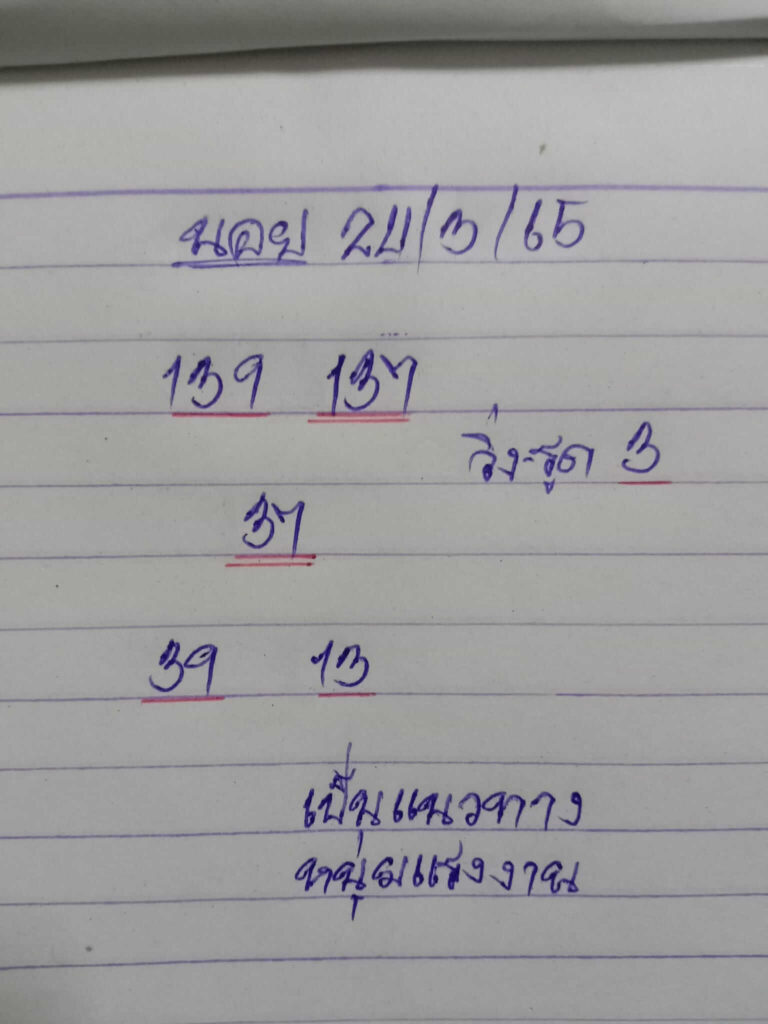 นอย 24/3/65
139 137
วิ่ง-รูด 3
37
39 13
เป็นแนวทาง
หนุ่มแรงงาน